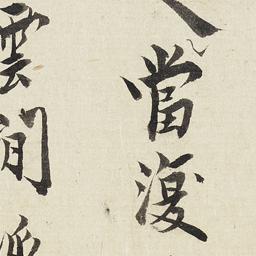 當復
雲間